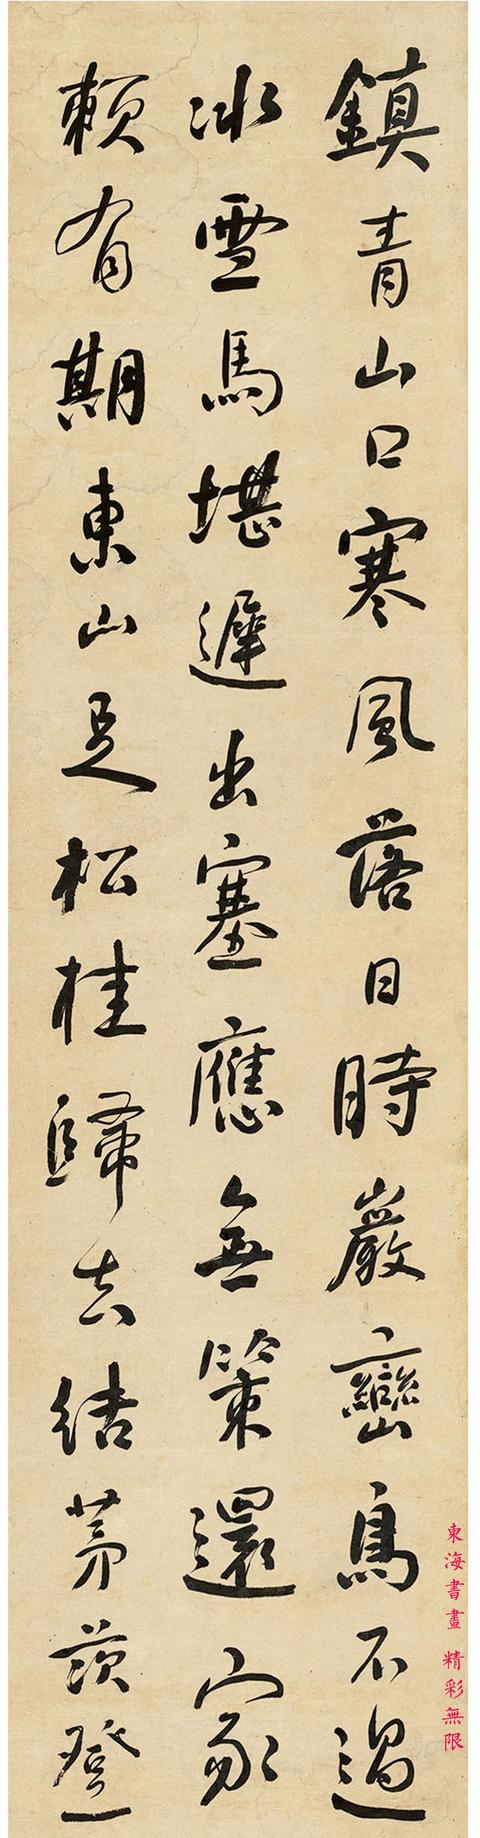 鎮青山口寒風落日時巖巒鳥不過
冰雪馬堪遲出塞應無策還家
賴有期東山足松桂歸去結茅茨登
東海書畫 精彩無限